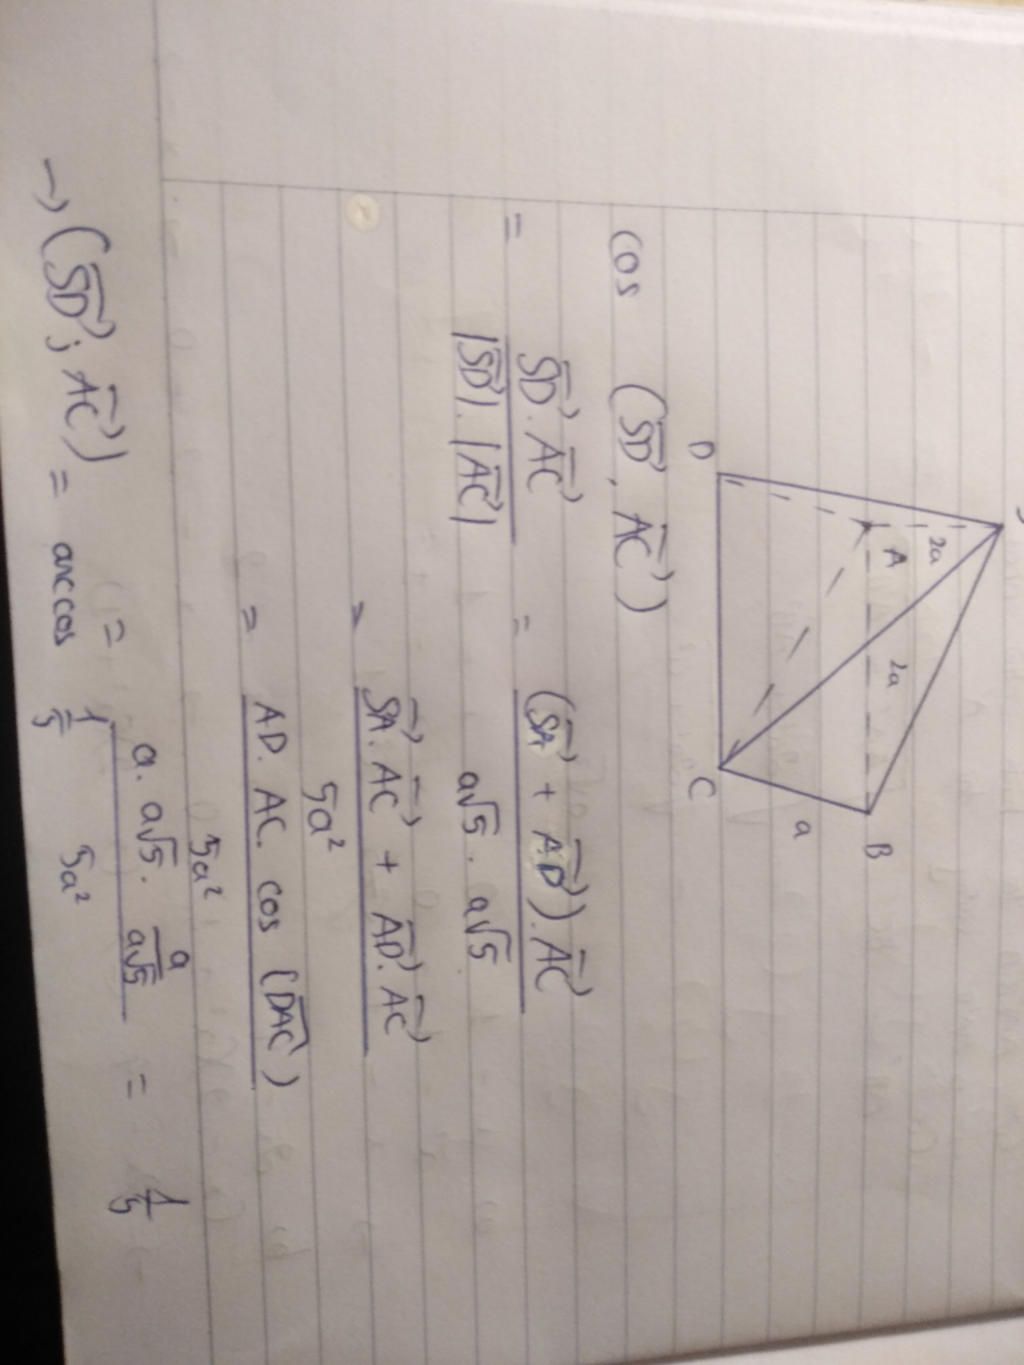 S
2a
A
2a
B
a
D
C
cos (SD⃗, AC⃗)
= SD⃗.AC⃗ / |SD⃗|.|AC⃗| = (SA⃗ + AD⃗).AC⃗ / a√5 . a√5
= SA⃗.AC⃗ + AD⃗.AC⃗ / 5a²
= AD. AC. cos (DAC) / 5a²
= a. a√5. a/a√5 / 5a² = 1/5
→ (SD⃗; AC⃗) = arccos 1/5